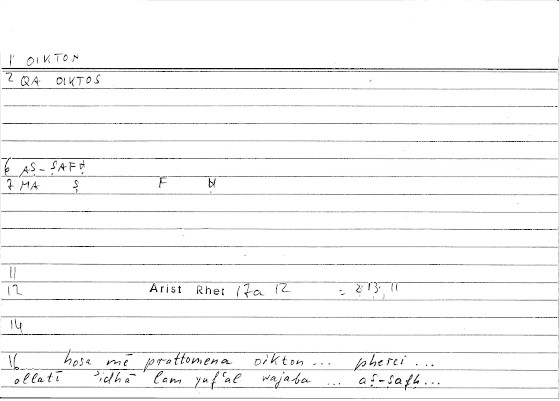 1 OIKTON
2 QA OIKTOS
6 AṢ-ṢAFḤ
7 MA Ṣ F Ḥ
11
12 Arist Rhet 17a 12 = 2.13, 11
14
16 hosa mē prattomena oikton ... pherei ...
allatī ʾidhā lam yufʿal wajaba ... aṣ-ṣafḥ...